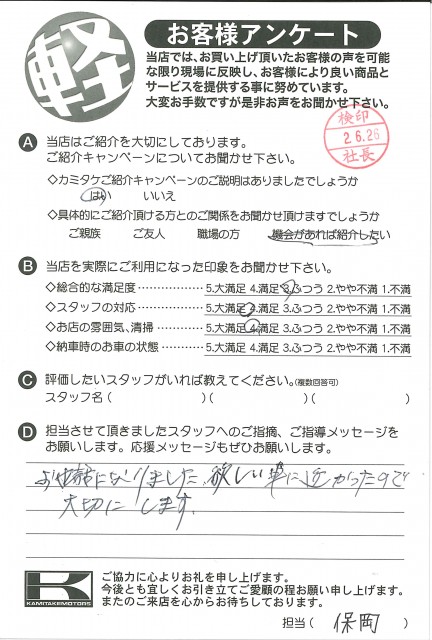 軽
お客様アンケート
当店では、お買い上げ頂いたお客様の声を可能
な限り現場に反映し、お客様により良い商品と
サービスを提供する事に努めています。
大変お手数ですが是非お声をお聞かせ下さい。
検印
2.6.26
社長
A 当店はご紹介を大切にしております。
ご紹介キャンペーンについてお聞かせ下さい。
◇カミタケご紹介キャンペーンのご説明はありましたでしょうか
はい いいえ
◇具体的にご紹介頂ける方とのご関係をお聞かせ頂けますでしょうか
ご親族 ご友人 職場の方 機会があれば紹介したい
B 当店を実際にご利用になった印象をお聞かせ下さい。
◇総合的な満足度 5.大満足 4.満足 3.ふつう 2.やや不満 1.不満
◇スタッフの対応 5.大満足 4.満足 3.ふつう 2.やや不満 1.不満
◇お店の雰囲気、清掃 5.大満足 4.満足 3.ふつう 2.やや不満 1.不満
◇納車時のお車の状態 5.大満足 4.満足 3.ふつう 2.やや不満 1.不満
C 評価したいスタッフがいれば教えてください。(複数回答可)
スタッフ名( )( )( )
D 担当させて頂きましたスタッフへのご指摘、ご指導メッセージを
お願いします。応援メッセージもぜひお願します。
お世話になりました。欲しい車に近かったので
大切にします。
K
KAMITAKE MOTORS
ご協力に心よりお礼を申し上げます。
今後とも宜しくお引き立てご愛顧の程お願い申し上げます。
またのご来店を心からお待ちしております。
担当( 保岡 )